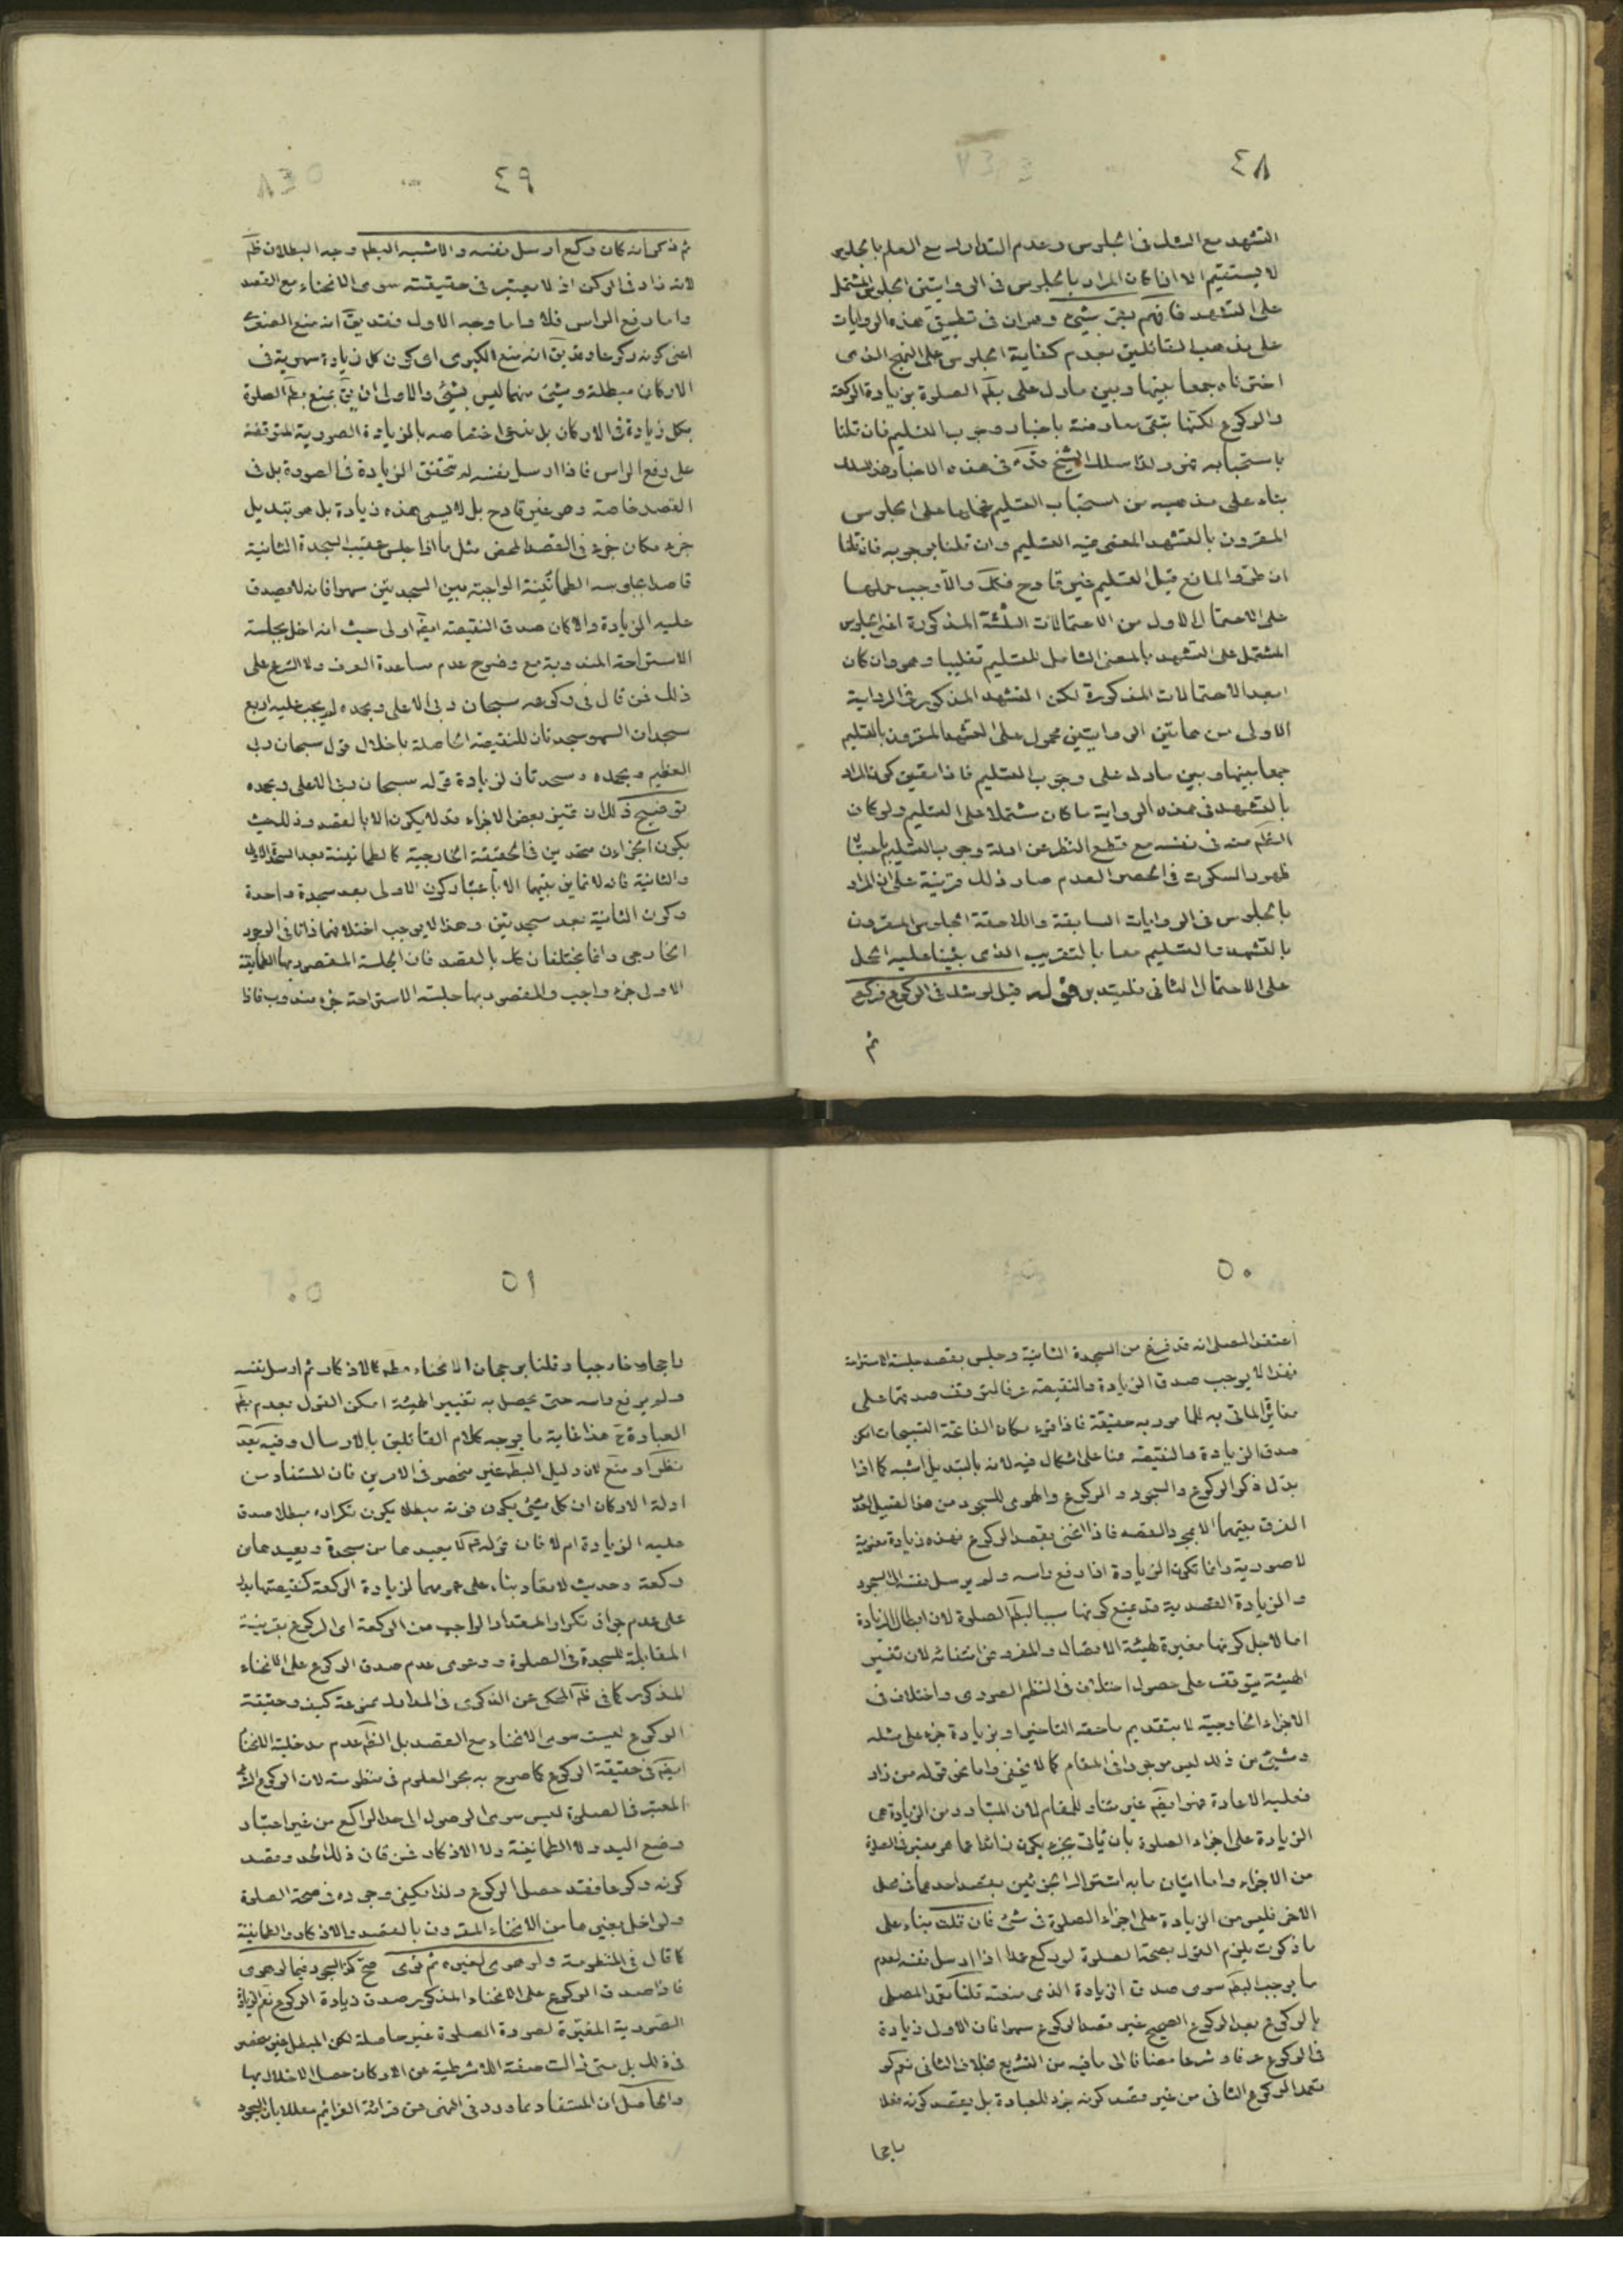 ٤٨
التشهد مع الشك فى الجلوس وعدم التداول مع العلم بالجلوس
لا يستقيم الا اذا كان المراد بالجلوس فى الروايتين الجلوس المشتمل
على التشهد فافهم بقى شىء وهو ان فى تطبيق هذه الروايات
على مذهب القائلين بعدم كفاية الجلوس على النهج الذى
اخترناه جمعا بينها وبين ما دل على بطم الصلوة بزيادة الركعة
والركوع لكنها تبقى معارضة باخبار وجوب التسليم فان قلنا
باستحبابه فهو ولذا سلك الشيخ قده فى هذه الاخبار هذا المسلك
بناء على مذهبه من استحباب التسليم فحملها على الجلوس
المقرون بالتشهد المعفى فيه التسليم وان قلنا بوجوبه فان قلنا
ان طرو المانع قبل التسليم غير قادح فكك والا وجب حملها
على الاحتمال الاول من الاحتمالات الثلثة المذكورة اعنى الجلوس
المشتمل على التشهد بالمعنى الشامل للتسليم تغليبا وهو وان كان
ابعد الاحتمالات المذكورة لكن التشهد المذكور فى الرواية
الاولى من هاتين الروايتين محمول على التشهد المقرون بالتسليم
جمعا بينها وبين ما دل على وجوب التسليم فاذا تعين كون المراد
بالتشهد فى هذه الرواية ما كان مشتملا على التسليم ولو كان
الظم منه فى نفسه مع قطع النظر عن ادلة وجوب التسليم
ظهور السكوت فى الحصر العدم صار ذلك قرينة على ان المراد
بالجلوس فى الروايات السابقة واللاحقة الجلوس المقرون
بالتشهد والتسليم معا بالتقريب الذى بنينا عليه الحمل
على الاحتمال الثانى فليتدبر قوله قيل لو شك فى الركوع فركع
ثم
٤٩
ثم ذكر انه كان ركع ارسل نفسه والاشبه البطم وجه البطلان ظم
لانه زاد فى الركن اذ لا يعتبر فى حقيقته سوى الانحناء مع القصد
واما رفع الراس فلا واما وجه الاول فقد يق انه منع الصغرى
اعنى كونه ركوعا وقد يق انه منع الكبرى اى كون كل زيادة سهوية فى
الاركان مبطلة وشىء منهما ليس بشىء والاولى ان يق بمنع بطم الصلوة
بكل زيادة فى الاركان بل ندعى اختصاصه بالزيادة الصورية المتوقفة
على رفع الراس فاذا ارسل نفسه لم تتحقق الزيادة فى الصورة بل فى
القصد خاصة وهو غير قادح بل لا يسمى هذه زيادة بل هو تبديل
جزء مكان جزء فى القصد المحض مثل ما اذا جلس عقيب السجدة الثانية
قاصدا بجلوسه الطمانينة الواجبة بين السجدتين سهوا فانه لا يصدق
عليه الزيادة والا كان صدق النقيصة ايضا اولى حيث انه اخل بجلسة
الاستراحة المندوبة مع وضوح عدم مساعدة العرف ولا الشرع على
ذلك فمن قال فى ركوعه سبحان ربى الاعلى وبحمده لم يجب عليه اربع
سجدات السهو سجدتان للنقيصة الحاصلة باخلال قول سبحان ربى
العظيم وبحمده وسجدتان لزيادة قوله سبحان ربى الاعلى وبحمده
توضيح ذلك ان تميز بعض الاجزاء قد لا يكون الا بالقصد وذلك حيث
يكون الجزءان متحدين فى الحقيقة الخارجية كالطمانينة بعد السجدة الاولى
والثانية فانه لا تمايز بينهما الا باعتبار كون الاولى بعد سجدة واحدة
وكون الثانية بعد سجدتين وهذا لا يوجب اختلافهما ذاتا فى الوجود
الخارجى وانما يختلفان كك بالقصد فان الجلسة المقصود بها الطمانينة
الاولى جزء واجب والمقصود بها جلسة الاستراحة جزء مندوب فاذا
٥٠
اعتقد المصلى انه قد فرغ من السجدة الثانية وجلس بقصد جلسة الاستراحة
فهذا لا يوجب صدق الزيادة والنقيصة عرفا لتوقف صدقهما على
مغايرة الماتى به للمامور به حقيقة فاذا قرء مكان الفاتحة التسبيحات امكن
صدق الزيادة والنقيصة هنا على اشكال فيه لانه بالتبديل اشبه كما اذا
بدل ذكر الركوع والسجود والركوع والهوى للسجود من هذا القبيل لعدم
الفرق بينهما الا بمجرد القصد فاذا انحنى بقصد الركوع فهذه زيادة معنوية
لا صورية وانما تكون الزيادة اذا رفع راسه ولم يرسل نفسه الى السجود
والزيادة القصدية قد يمنع كونها سببا لبطم الصلوة لان ابطال الزيادة
اما لاجل كونها مغيرة لهيئة الاتصال والمفروض انتفائه لان تغيير
الهيئة يتوقف على حصول اختلاف فى النظم الصورى واختلاف فى
الاجزاء الخارجية لا بتقديم ما حقه التاخير او بزيادة جزء على مثله
وشىء من ذلك ليس موجودا فى المقام كما لا يخفى واما نحو قوله من زاد
فعليه الاعادة فهو ايضا غير متناول للمقام لان المتبادر من الزيادة هى
الزيادة على اجزاء الصلوة بان ياتى بجزء يكون زائدا عما هو معتبر فى الصلوة
من الاجزاء واما اتيان ما به اشتراك الجزئين بقصد احدهما فى محل
الاخر فليس من الزيادة على اجزاء الصلوة فى شئ فان قلت بناء على
ما ذكرت يلزم القول بصحة الصلوة لو ركع عمدا اذا ارسل نفسه لعدم
ما يوجب البطم سوى صدق الزيادة الذى منعته قلنا تعمد المصلى
بالركوع بعد الركوع الصحيح غير قصد الركوع سهوا فان الاول زيادة
فى الركوع عرفا وشرعا مضافا الى ما فيه من التشريع بخلاف الثانى نعم لو
تعمد الركوع الثانى من غير قصد كونه جزء للعبادة بل بقصد كونه فعلا
٥١
ولم يرفع راسه حتى يحصل به تغيير الهيئة امكن القول بعدم بطم
العبادة ح هذا غاية ما يوجه كلام القائلين بالارسال وفيه بعد
نظر او منع لان دليل البطم غير منحصر فى الامرين فان المستفاد من
ادلة الاركان ان كل شىء يكون فوته مبطلا يكون تكراره مبطلا صدق
عليه الزيادة ام لا فان قوله لا يعيدها من سجدة ويعيدها من
ركعة وحديث لا تعاد بناء على عمومهما لزيادة الركعة كنقيصتها يدل
على عدم جواز تكرار المقدار الواجب من الركعة اى الركوع بقرينة
المقابلة للسجدة فى الصلوة ودعوى عدم صدق الركوع على الانحناء
المذكور كما فى ظم المحكى عن الذكرى فى المدارك ممنوعة كيف وحقيقة
الركوع ليست سوى الانحناء مع القصد بل الظم عدم مدخلية الانحناء
ايضا فى حقيقة الركوع كما صرح به بحر العلوم فى منظومته لان الركوع
المعتبر فى الصلوة ليس سوى الوصول الى حد الراكع من غير اعتبار
وضع اليد ولا الطمانينة ولا الاذكار فمن قارن ذلك الحد وقصد
كونه ركوعا فقد حصل الركوع ولذا يكفى وجوده فى صحة الصلوة
ولو اخل بغيرها من الانحناء المقرون بالقصد والاذكار والطمانينة
كما قال فى المنظومة ولو هوى لغيره ثم نوى صح كذا السجود فيما لو هوى
فاذا صدق الركوع على الانحناء المذكور صدق زيادة الركوع نعم الزيادة
الصورية المغيرة لصورة الصلوة غير حاصلة لكن المبطل غير منحصر
والحاصل ان المستفاد مما ورد فى النهى عن قرائة العزائم معللا بان السجود